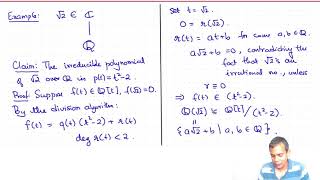 Example 6: √2 ∈ ℂ
|
ℚ
Claim: The irreducible polynomial
of √2 over ℚ is p(t) = t²-2.
Proof: Suppose f(t) ∈ ℚ[t], f(√2)=0.
By the division algorithm:
f(t) = q(t) (t²-2) + r(t)
deg r(t) < 2.
Set t = √2.
0 = r(√2)
r(t) = at+b for some a,b ∈ ℚ
a√2+b = 0, contradicting the
fact that √2 is an
irrational no., unless
r ≡ 0
⇒ f(t) ∈ (t²-2)
ℚ(√2) ≅ ℚ[t]/(t²-2)
||
{a√2+b | a,b ∈ ℚ}